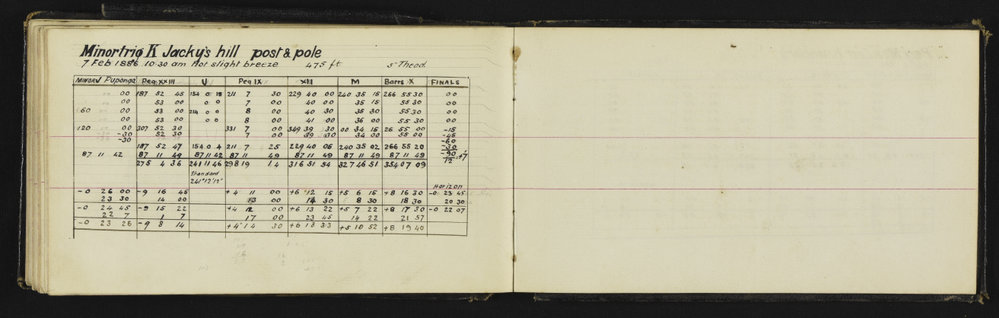 Minortrig K Jacky's hill post & pole
7 Feb 1886 10.30 am Hot slight breeze 475 ft 5" Theod.
Minor Puponga Peg XXIII U Peg IX XII M Barrs X FINALS
00 187 52 45 154 0 211 7 30 229 40 00 240 35 15 266 55 30 00
00 53 00 0 0 7 00 40 00 35 15 55 30 00
60 00 53 00 0 0 8 00 40 30 35 30 55 30 00
00 53 00 0 0 8 00 41 00 36 00 55 30 00
120 00 307 52 30 331 7 00 349 39 30 00 34 15 26 55 00 -15
-30 52 30 7 00 34 00 55 00 -45
-30 -60
187 52 47 154 0 4 211 7 25 229 40 05 240 35 02 266 55 20
87 11 42 87 11 49 87 11 42 87 11 49 87 11 49 87 11 49 87 11 49 -90
275 4 36 241 11 46 298 19 14 316 51 54 327 46 51 354 07 09 12
Standard
241° 12' 12"
-0 26 00 -9 16 45 +4 11 00 +6 12 15 +5 6 15 +8 16 30 -0 23 45
23 30 14 00 13 00 14 30 8 30 18 30 20 30
-0 24 45 -9 15 22 +4 12 00 +6 13 22 +5 7 22 +8 17 30 -0 22 07
22 7 1 7 17 00 23 45 14 22 21 57
-0 23 26 -9 8 14 +4 14 30 +6 18 33 +5 10 52 +8 19 40